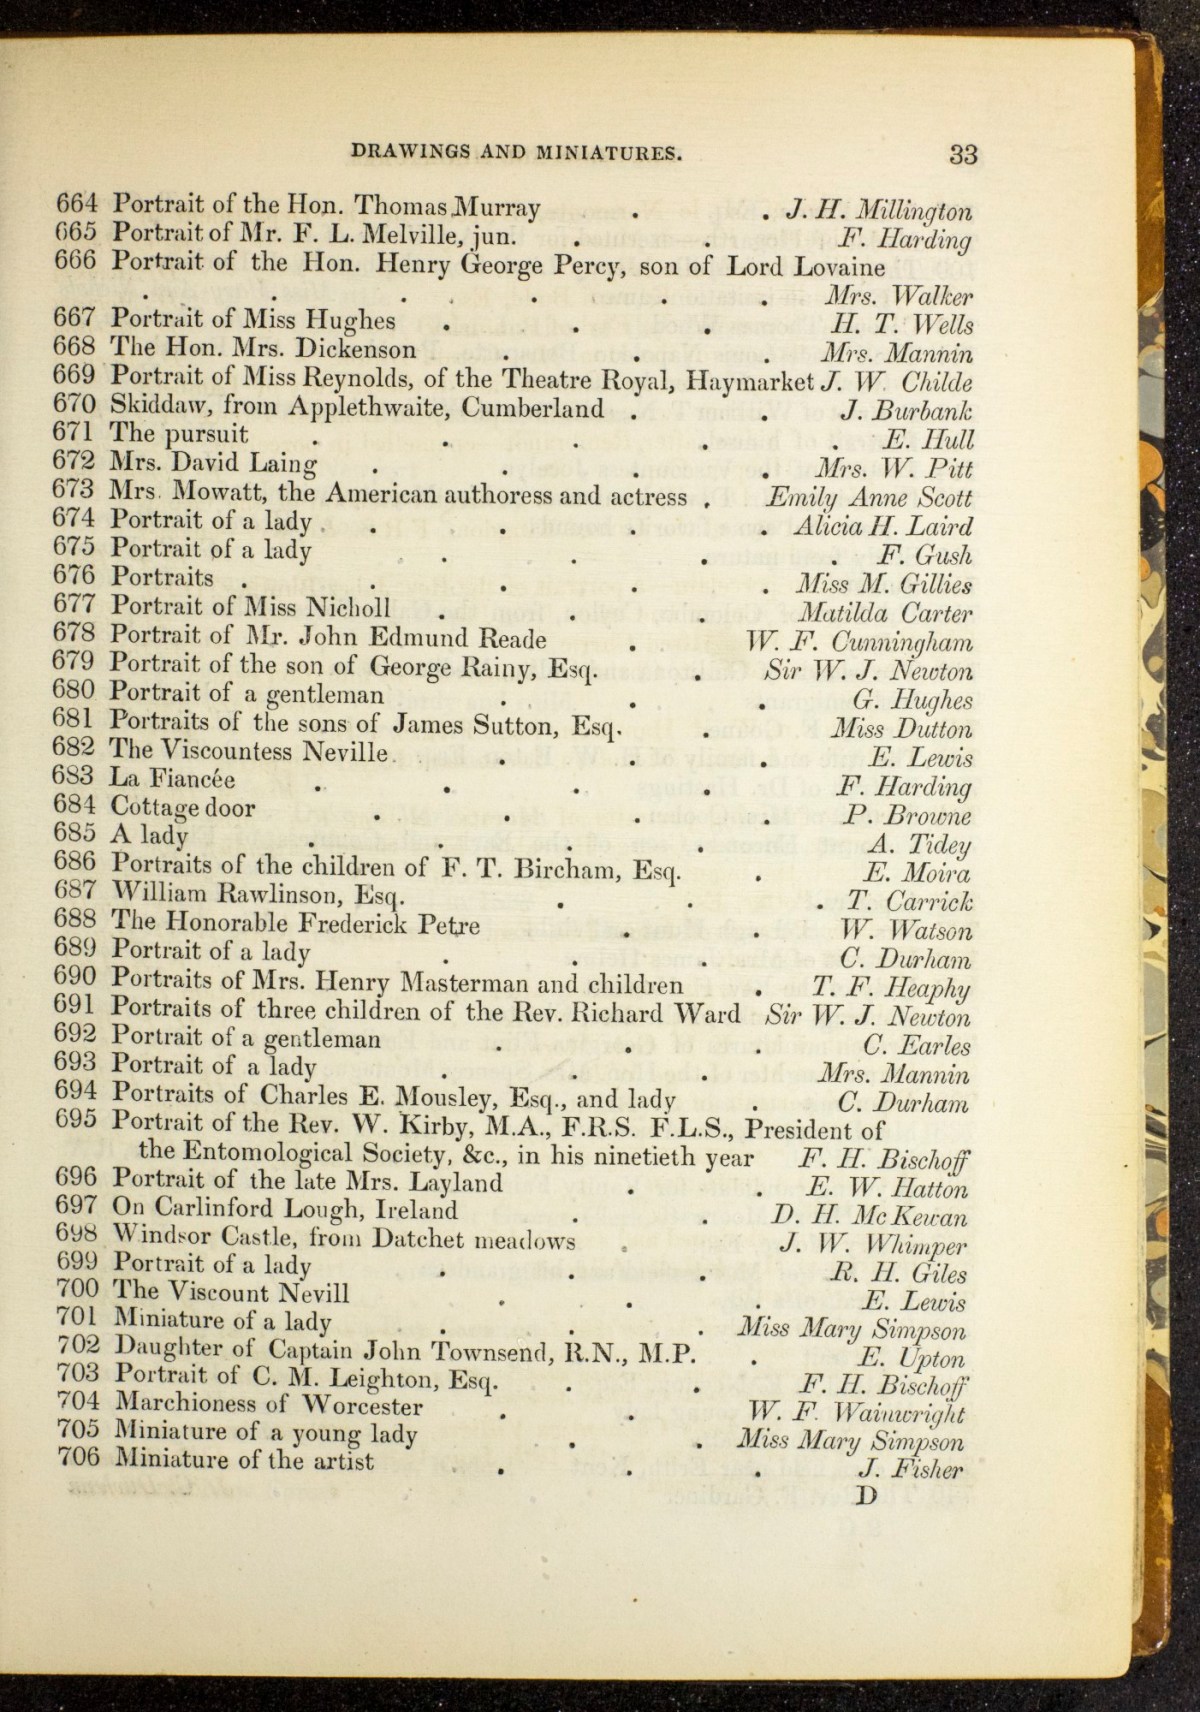 DRAWINGS AND MINIATURES. 33
664 Portrait of the Hon. Thomas Murray . . J. H. Millington
665 Portrait of Mr. F. L. Melville, jun. . . F. Harding
666 Portrait of the Hon. Henry George Percy, son of Lord Lovaine
. . . . . . Mrs. Walker
667 Portrait of Miss Hughes . . . H. T. Wells
668 The Hon. Mrs. Dickenson . . . Mrs. Mannin
669 Portrait of Miss Reynolds, of the Theatre Royal, Haymarket J. W. Childe
670 Skiddaw, from Applethwaite, Cumberland . . J. Burbank
671 The pursuit . . . . . E. Hull
672 Mrs. David Laing . . . . Mrs. W. Pitt
673 Mrs. Mowatt, the American authoress and actress . Emily Anne Scott
674 Portrait of a lady . . . . Alicia H. Laird
675 Portrait of a lady . . . . F. Gush
676 Portraits . . . . . Miss M. Gillies
677 Portrait of Miss Nicholl . . . Matilda Carter
678 Portrait of Mr. John Edmund Reade . W. F. Cunningham
679 Portrait of the son of George Rainy, Esq. . Sir W. J. Newton
680 Portrait of a gentleman . . . G. Hughes
681 Portraits of the sons of James Sutton, Esq. . Miss Dutton
682 The Viscountess Neville . . . E. Lewis
683 La Fiancée . . . . F. Harding
684 Cottage door . . . . P. Browne
685 A lady . . . . A. Tidey
686 Portraits of the children of F. T. Bircham, Esq. . E. Moira
687 William Rawlinson, Esq. . . . T. Carrick
688 The Honorable Frederick Petre . . W. Watson
689 Portrait of a lady . . . C. Durham
690 Portraits of Mrs. Henry Masterman and children . T. F. Heaphy
691 Portraits of three children of the Rev. Richard Ward Sir W. J. Newton
692 Portrait of a gentleman . . . C. Earles
693 Portrait of a lady . . . Mrs. Mannin
694 Portraits of Charles E. Mousley, Esq., and lady . C. Durham
695 Portrait of the Rev. W. Kirby, M.A., F.R.S. F.L.S., President of
the Entomological Society, &c., in his ninetieth year F. H. Bischoff
696 Portrait of the late Mrs. Layland . . E. W. Hatton
697 On Carlinford Lough, Ireland . . D. H. McKewan
698 Windsor Castle, from Datchet meadows . J. W. Whimper
699 Portrait of a lady . . . R. H. Giles
700 The Viscount Nevill . . . E. Lewis
701 Miniature of a lady . . . Miss Mary Simpson
702 Daughter of Captain John Townsend, R.N., M.P. . E. Upton
703 Portrait of C. M. Leighton, Esq. . . F. H. Bischoff
704 Marchioness of Worcester . . W. F. Wainwright
705 Miniature of a young lady . . Miss Mary Simpson
706 Miniature of the artist . . . J. Fisher
D